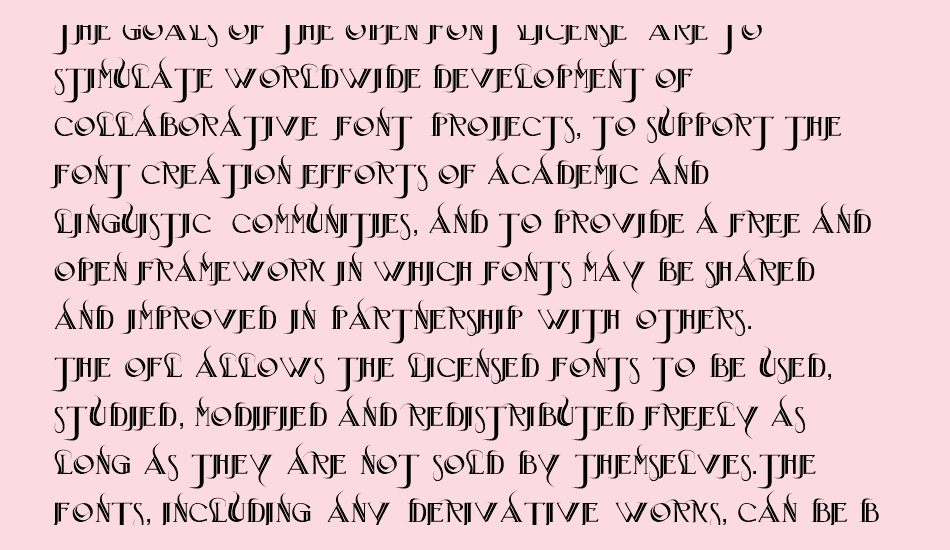 THE GOALS OF THE OPEN FONT LICENSE ARE TO
STIMULATE WORLDWIDE DEVELOPMENT OF
COLLABORATIVE FONT PROJECTS, TO SUPPORT THE
FONT CREATION EFFORTS OF ACADEMIC AND
LINGUISTIC COMMUNITIES, AND TO PROVIDE A FREE AND
OPEN FRAMEWORK IN WHICH FONTS MAY BE SHARED
AND IMPROVED IN PARTNERSHIP WITH OTHERS.
THE OFL ALLOWS THE LICENSED FONTS TO BE USED,
STUDIED, MODIFIED AND REDISTRIBUTED FREELY AS
LONG AS THEY ARE NOT SOLD BY THEMSELVES.THE
FONTS, INCLUDING ANY DERIVATIVE WORKS, CAN BE B